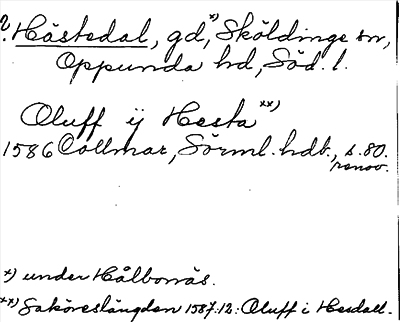 ? Hästedal, gd,*) Sköldinge sn,
Oppunda hd, Söd. l.
Oluff ij Hesta **)
1586 Collmar, Sörml. hdb., s. 80.
renov.
*) under Hålbonäs.
**) Saköreslängden 1587:12: Oluff i Hesdall.